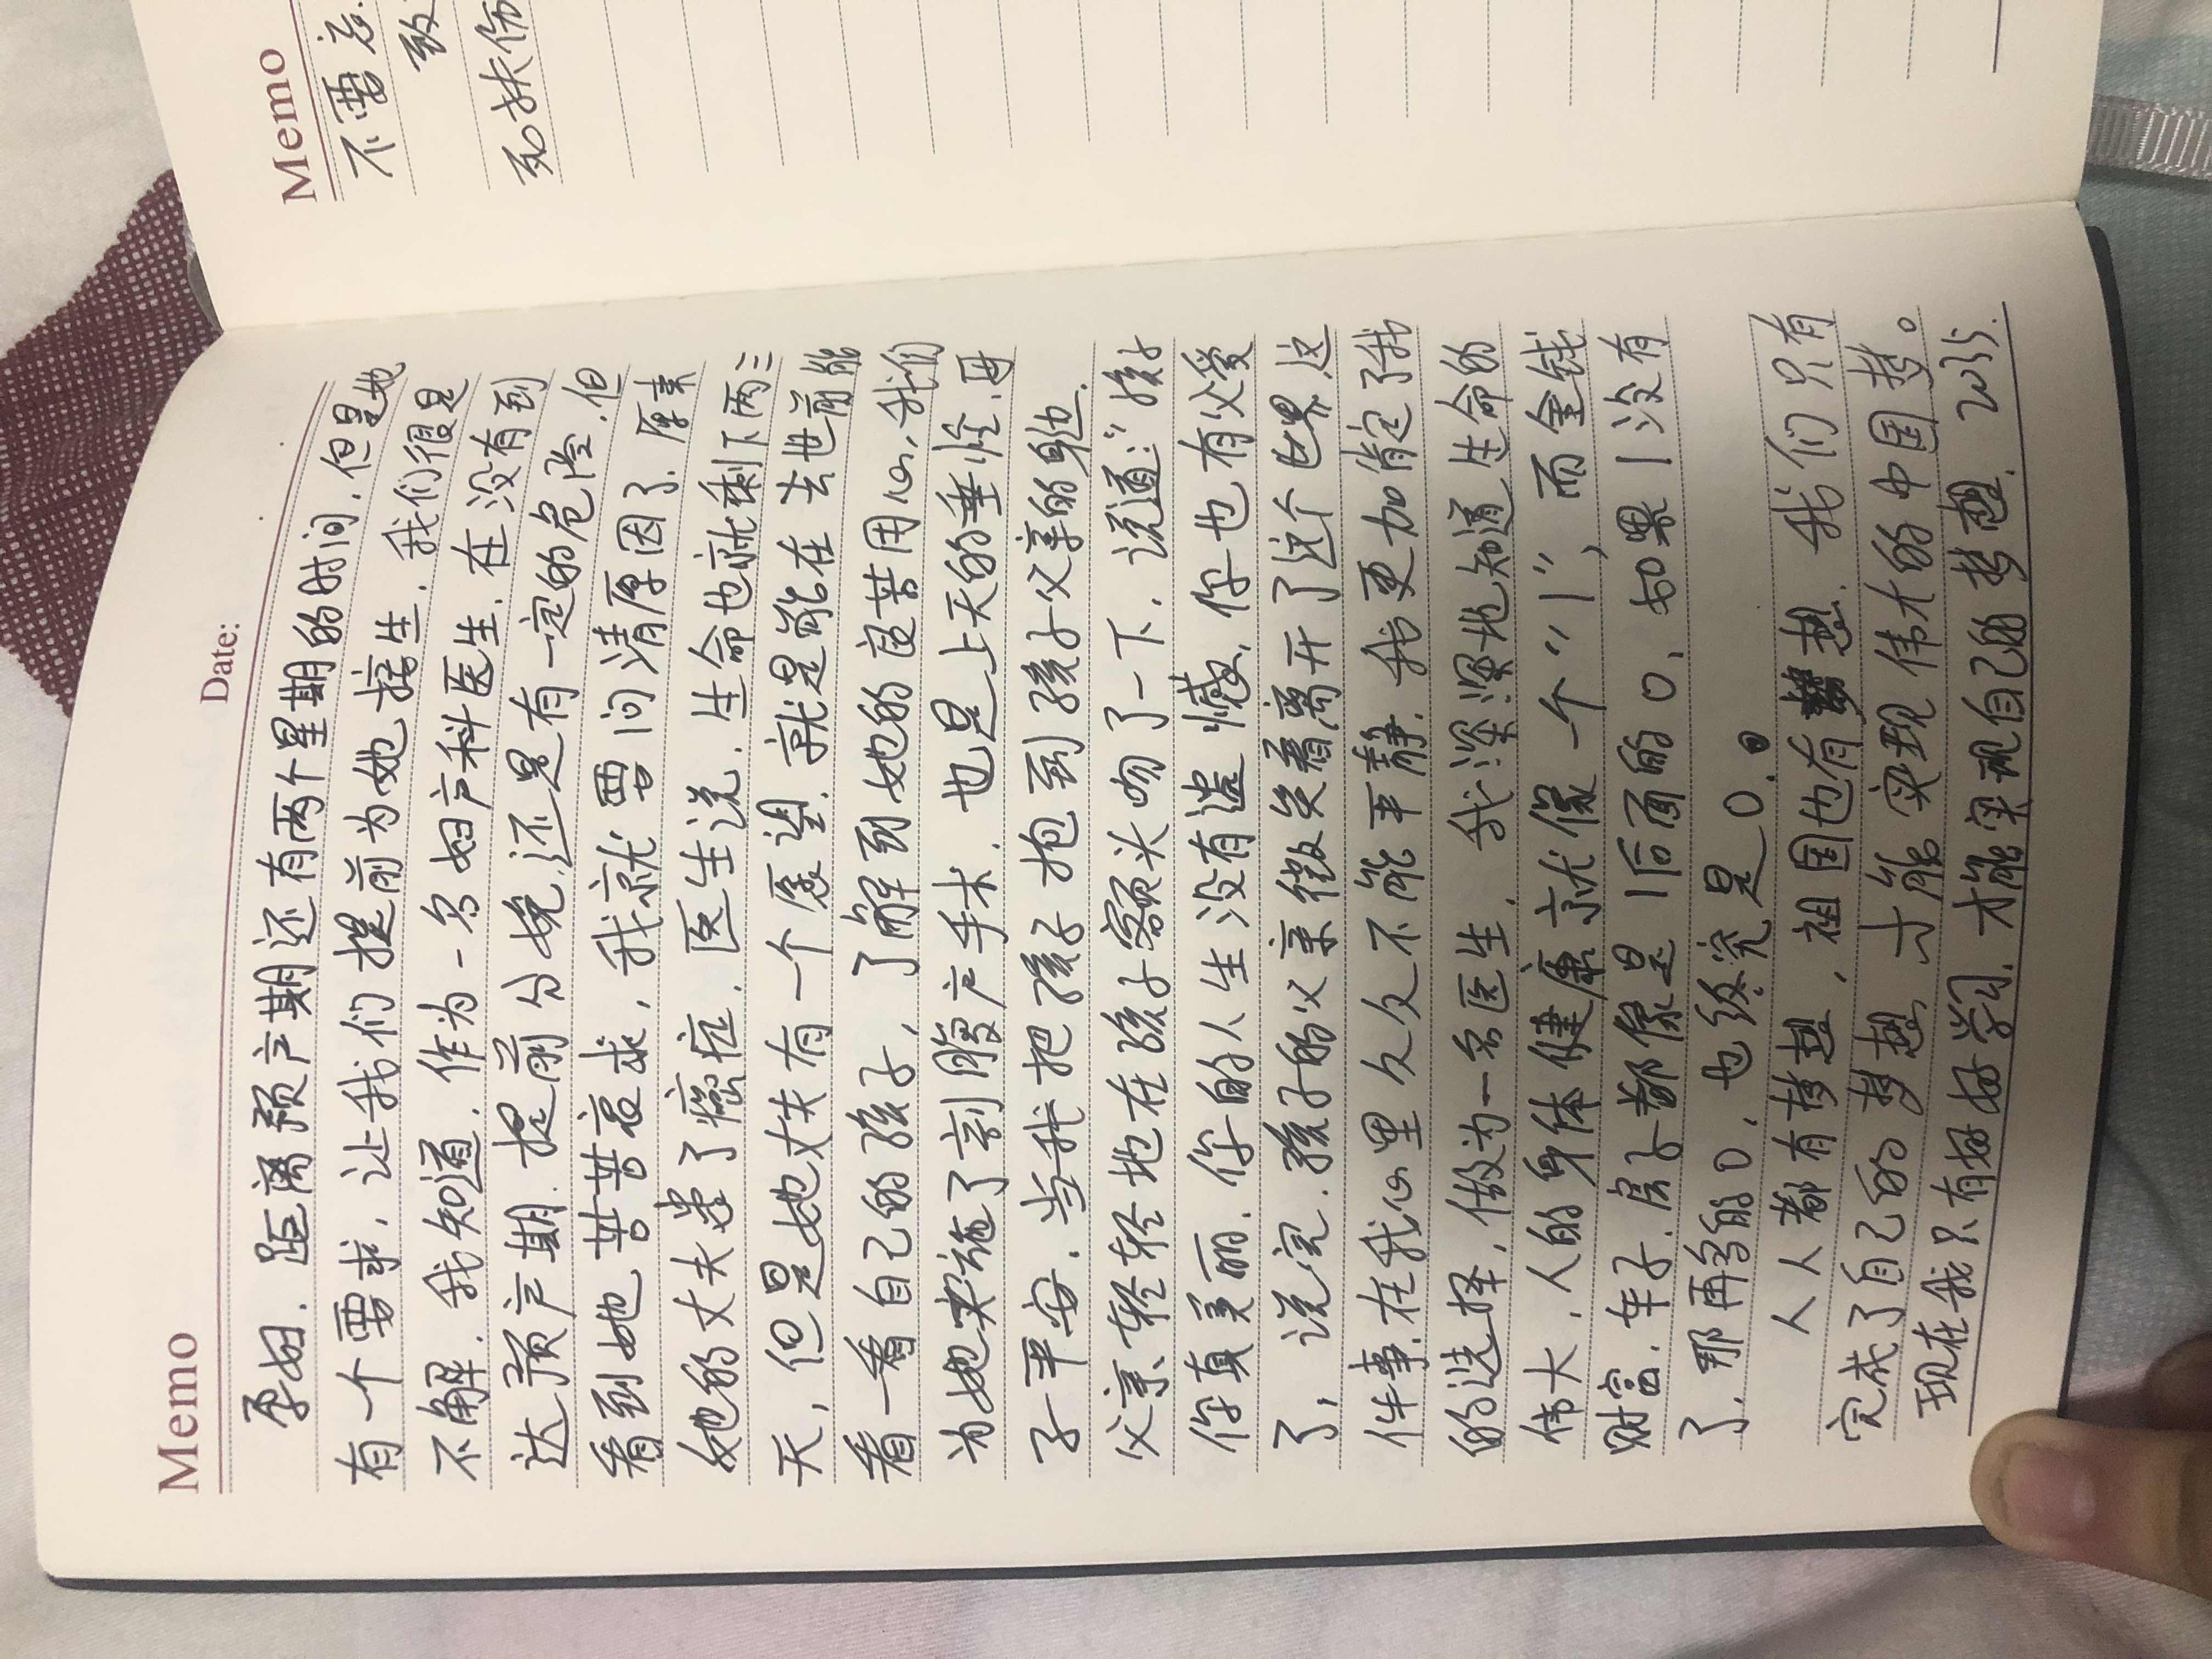 Memo
Date:
孕妇. 距离预产期还有两个星期的时间. 但是她
有一个要求, 让我们提前为她接生. 我们很是
不解. 我知道. 作为一名妇产科医生. 在没有到
达预产期. 提前分娩, 还是有一定的危险. 但
看到她苦苦哀求, 我就要问清原因了. 原来
她的丈夫患了癌症. 医生说. 生命也就剩下两三
天, 但是她丈夫有一个愿望. 就是能在去世前能
看一看自己的孩子, 了解到她的良苦用心, 我们
为她实施了剖腹产手术. 也是上天的垂怜. 母
子平安. 当我把孩子抱到孩子父亲的身边.
父亲轻轻地在孩子额头吻了一下. 说道:“孩子
你真美丽. 你的人生没有遗憾. 你也有父爱
了, 说完. 孩子的父亲微笑着离开了这个世界. 这
件事. 在我心里久久不能平静. 我更加肯定了我
的选择, 做为一名医生. 我深深地知道生命的
伟大, 人的身体健康就像一个“1”, 而金钱
财富. 车子. 房子都像是1后面的0、如果1没有
了. 那再多的0, 也终究是0.
人人都有梦想, 祖国也有梦想. 我们只有
完成了自己的梦想, 才能实现伟大的中国梦。
现在我只有好好学习. 才能实现自己的梦想. 2035.
Memo
不要忘
致
死扶伤